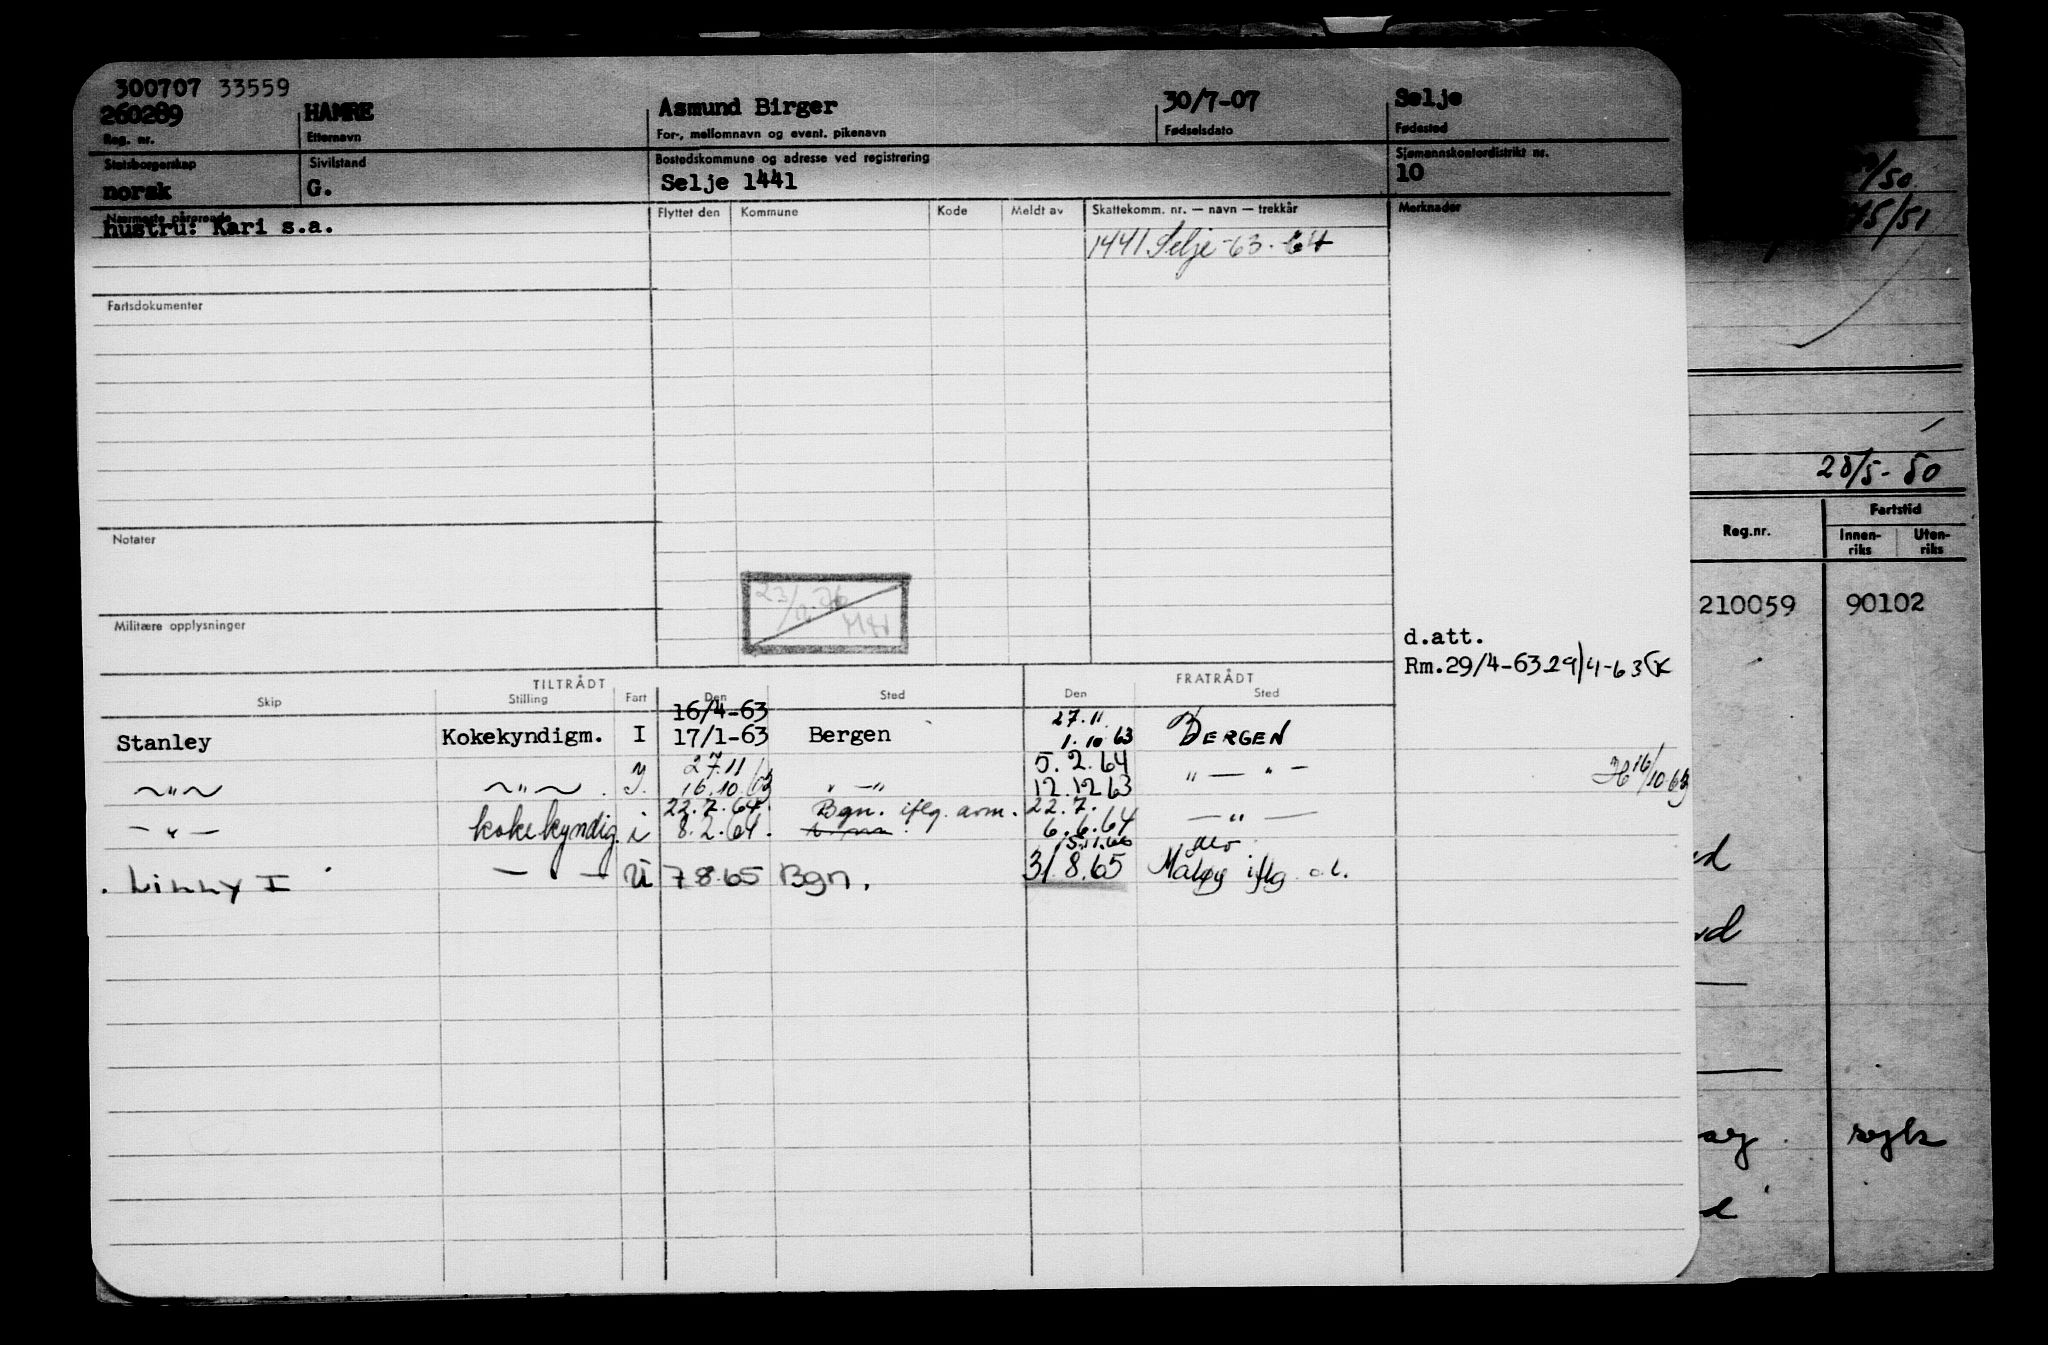 300707 33559
260289 HAMRE Asmund Birger 30/7-07 Selje
Reg. nr. Etternavn For-, mellomnavn og event. pikenavn Fødselsdato Fødested
Statsborgerskap Sivilstand Bostedskommune og adresse ved registrering Sjømannskontordistrikt nr.
norsk G. Selje 1441 10
Nærmeste pårørende Flyttet den Kommune Kode Meldt av Skattekomm. nr. — navn — trekkår Merknader
hustru: Kari s.a.
1441 Selje -63-64
Fartsdokumenter
Notater
23/12.76
Militære opplysninger
d.att.
Rm.29/4-63 29/4-63
TILTRÅDT FRATRÅDT
Skip Stilling Fart Den Sted Den Sted
16/4-63 27.11
Stanley Kokekyndigm. I 17/1-63 Bergen 1.10 63 BERGEN
27.11 5.2.64
~"~ ~"~ . I. 16.10.63 " —" 12.12 63 " — " — 16/10-63
22.7.64. Bgn. iflg. avm. 22.7.
— " — kokekyndig. i 8.2.64. 6.6.64 — " —
5.11.66
. LILLY I — — U 7 8.65 Bgn. 31.8.65 Måløy iflg
/50
/51
28/5-50
Reg.nr. Fartstid
Innen-riks Uten-riks
210059 90102